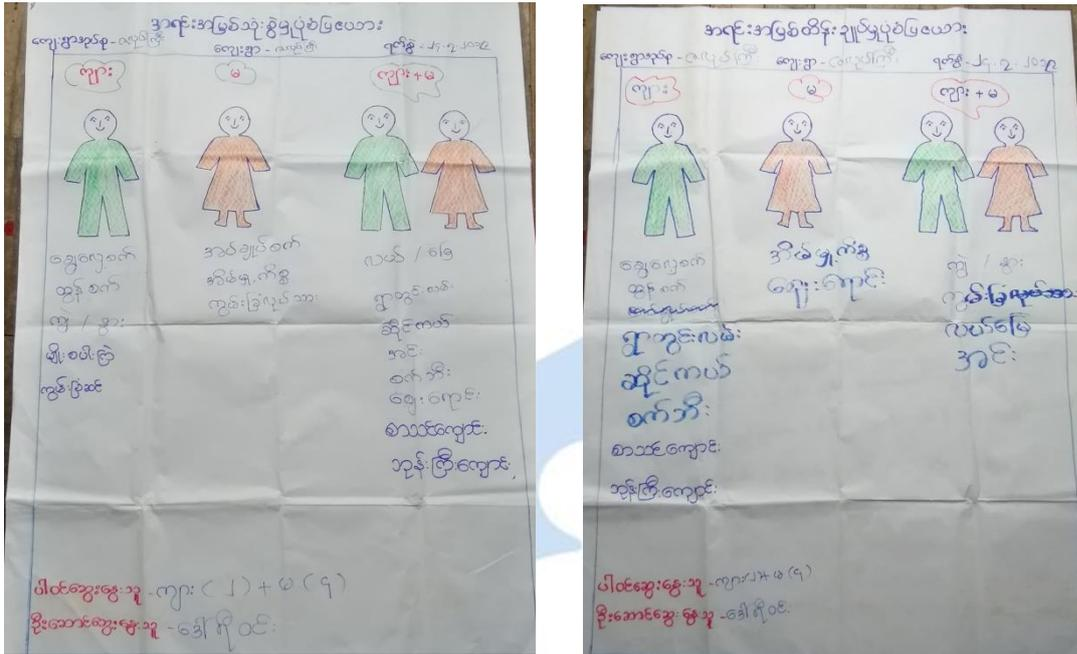 အရင်းအမြစ်သုံးစွဲမှုပုံစံပြဇယား
ကျေးရွာအုပ်စု -
ကျေးရွာ -
ရက်စွဲ -
ကျား
မ
ကျား + မ
ချွေလှေ့စက်
ထွန်စက်
ကျွဲ / နွား
မျိုးစပါးကြဲ
ကျွမ်းခြံဆင်
အပ်ချုပ်စက်
အိမ်မှုကိစ္စ
ကွမ်းခြံလုပ်သား
လယ် / မြေ
ရွာတွင်းလမ်း
ဆိုင်ကယ်
အင်း
စက်ဘီး
ဈေးရောင်း
စာသင်ကျောင်း
ဘုန်းကြီးကျောင်း
ပါဝင်ဆွေးနွေးသူ - ကျား (၂) + မ (၄)
ဦးဆောင်ဆွေးနွေးသူ - ဒေါ်
အရင်းအမြစ်ထိန်းချုပ်မှုပုံစံပြဇယား
ကျေးရွာအုပ်စု -
ကျေးရွာ -
ရက်စွဲ -
ကျား
မ
ကျား + မ
ချွေလှေ့စက်
ထွန်စက်
ရွာတွင်းလမ်း
ဆိုင်ကယ်
စက်ဘီး
စာသင်ကျောင်း
ဘုန်းကြီးကျောင်း
အိမ်မှုကိစ္စ
ဈေးရောင်း
ကျွဲ / နွား
ကွမ်းခြံလုပ်သား
လယ်မြေ
အင်း
ပါဝင်ဆွေးနွေးသူ - ကျား (၂) + မ (၄)
ဦးဆောင်ဆွေးနွေးသူ - ဒေါ်